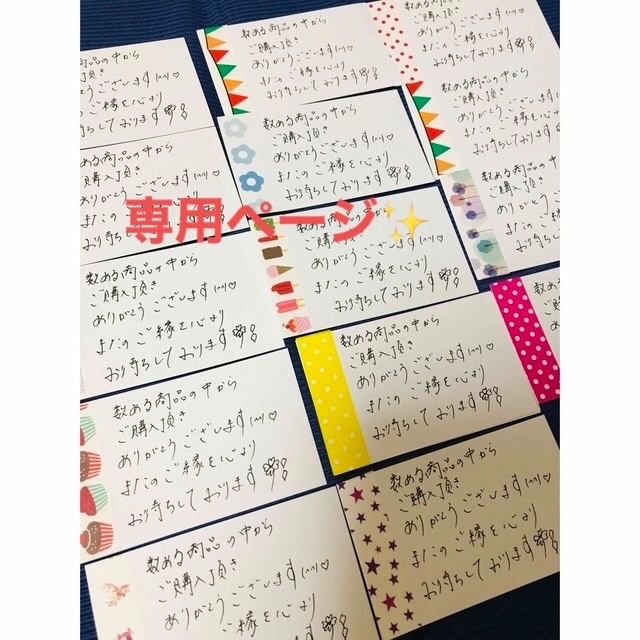 める商品の中から
ご購入頂き
とうございます(^^)♡
ご縁を心より
お待ちしております
数ある商品の中から
ご購入頂き
ありがとうございます(^^)♡
またのご縁を心より
お待ちしております
数ある商品の中から
ご購入頂き
ありがとうございます
またのご縁を心より
お待ちしております
ある商品の中から
ご購入頂き
ありがとうございます(^^)♡
またのご縁を心より
お待ちしております
数ある商品の中から
ご購入頂き
ありがとうございます(^^)♡
またのご縁を心より
お待ちしております
数ある商品の中から
ご購入頂き
ありがとうございます
またのご縁を
お待ちして
専用ページ✨
数ある商品の中から
ご購入頂き
ありがとうございます(^^)♡
またのご縁を心より
お待ちしております
数ある商品の中から
ご購入頂き
ありがとうございます(^^)♡
またのご縁を心より
お待ちしております
数ある商品の中から
ご購入頂き
ありがとうございます(^^)♡
またのご縁を心より
お待ちしております
数ある商品の中から
ご購入頂き
ありがとうございます(^^)♡
またのご縁を心より
お待ちしております
数ある商品の中から
ご購入頂き
ありがとうございます(^^)♡
またのご縁を心より
お待ちしております
数ある商品の中から
ご購入頂き
ありがとうございます(^^)♡
ご縁を心より